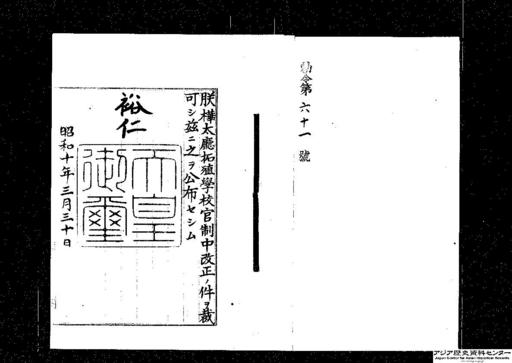 勅令第六十一號
朕樺太廳拓殖學校官制中改正ノ件ヲ裁
可シ茲ニ之ヲ公布セシム
裕仁
天皇
御璽
昭和十年三月三十日
アジア歴史資料センター
Japan Center for Asian Historical Records